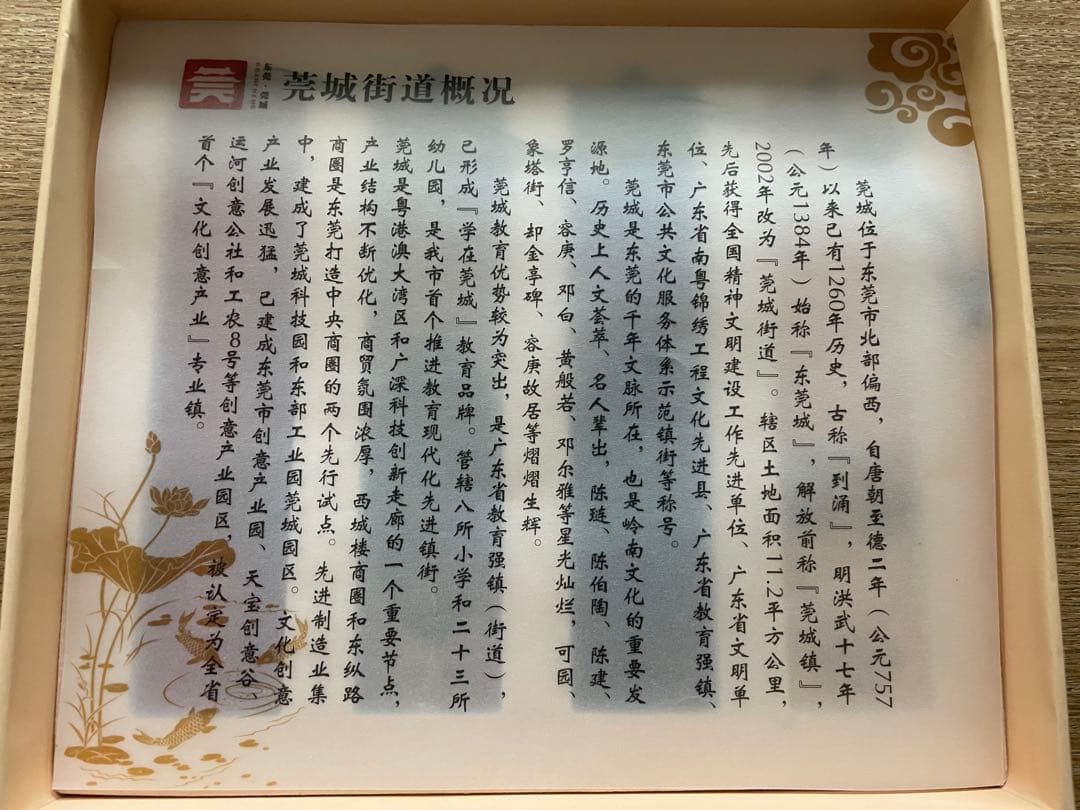 莞
东莞·莞城
莞城街道概况
莞城位于东莞市北部偏西，自唐朝至德二年（公元757
年）以来已有1260年历史，古称『到涌』，明洪武十七年
（公元1384年）始称『东莞城』，解放前称『莞城镇』，
2002年改为『莞城街道』。辖区土地面积11.2平方公里，
先后获得全国精神文明建设工作先进单位、广东省文明单
位、广东省南粤锦绣工程文化先进县、广东省教育强镇、
东莞市公共文化服务体系示范镇街等称号。
莞城是东莞的千年文脉所在，也是岭南文化的重要发
源地。历史上人文荟萃、名人辈出，陈琏、陈伯陶、陈建、
罗亨信、容庚、邓白、黄般若、邓尔雅等星光灿烂，可园、
象塔街、却金亭碑、容庚故居等熠熠生辉。
莞城教育优势较为突出，是广东省教育强镇（街道），
已形成『学在莞城』教育品牌。管辖八所小学和二十三所
幼儿园，是我市首个推进教育现代化先进镇街。
莞城是粤港澳大湾区和广深科技创新走廊的一个重要节点，
产业结构不断优化，商贸氛围浓厚，西城楼商圈和东纵路
商圈是东莞打造中央商圈的两个先行试点。先进制造业集
中，建成了莞城科技园和东部工业园莞城园区。文化创意
产业发展迅猛，已建成东莞市创意产业园、天宝创意谷、
运河创意公社和工农8号等创意产业园区，被认定为全省
首个『文化创意产业』专业镇。